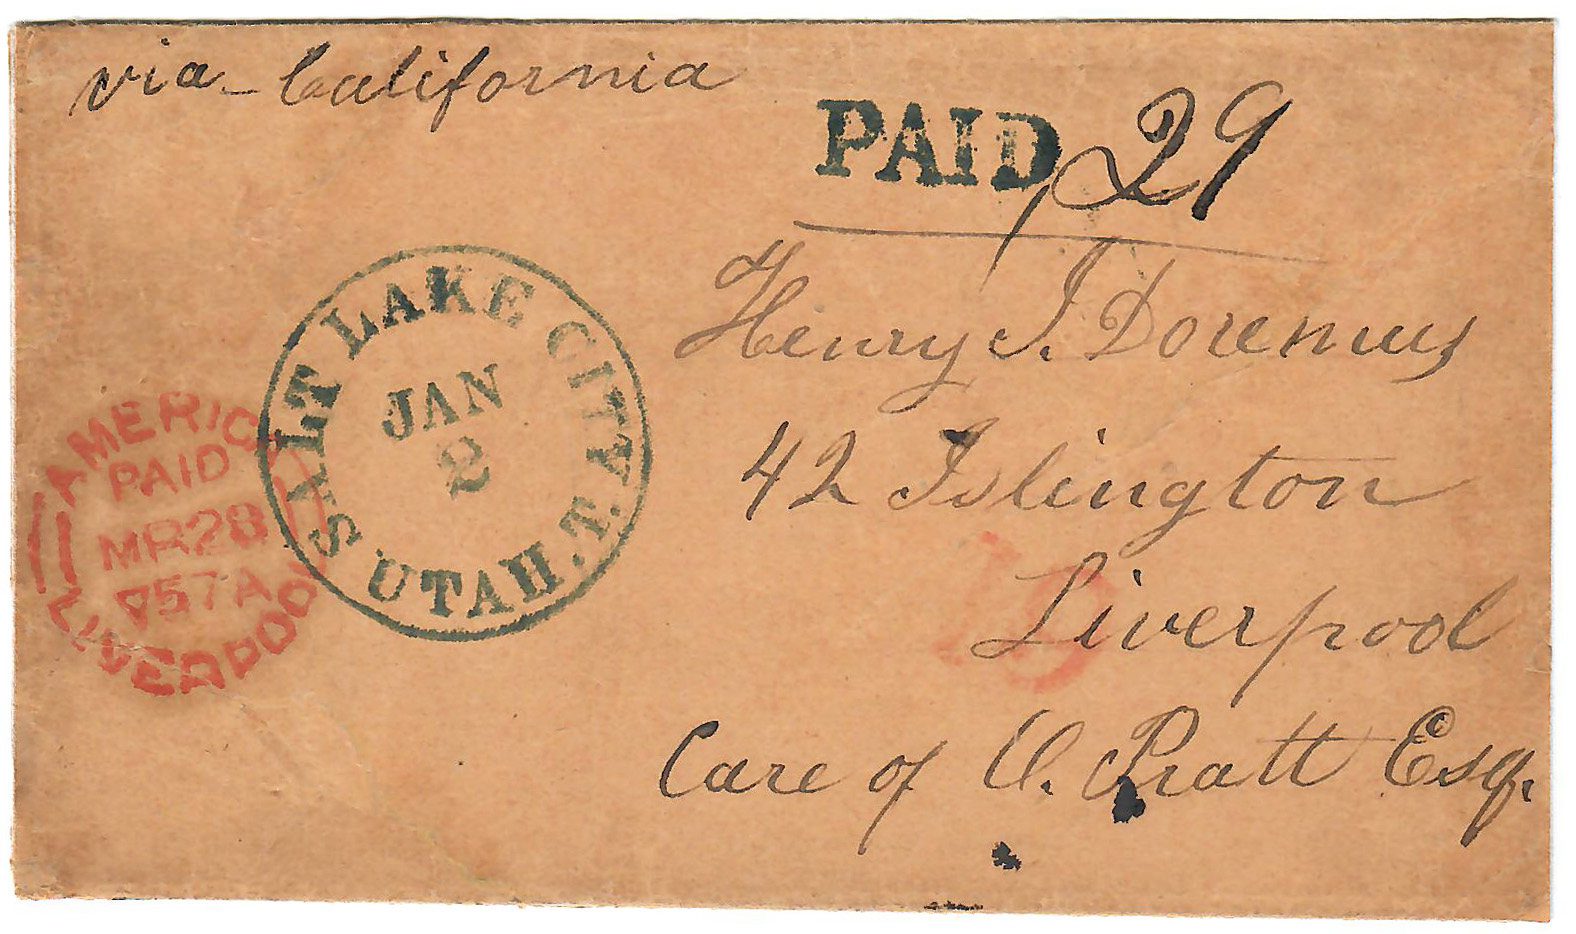 via California
PAID 29
Henry I. Doremus
42 Islington
Liverpool
Care of O. Pratt Esq.
SALT LAKE CITY
UTAH.T.
JAN
2
AMERICA
PAID
MR28
57A
LIVERPOOL